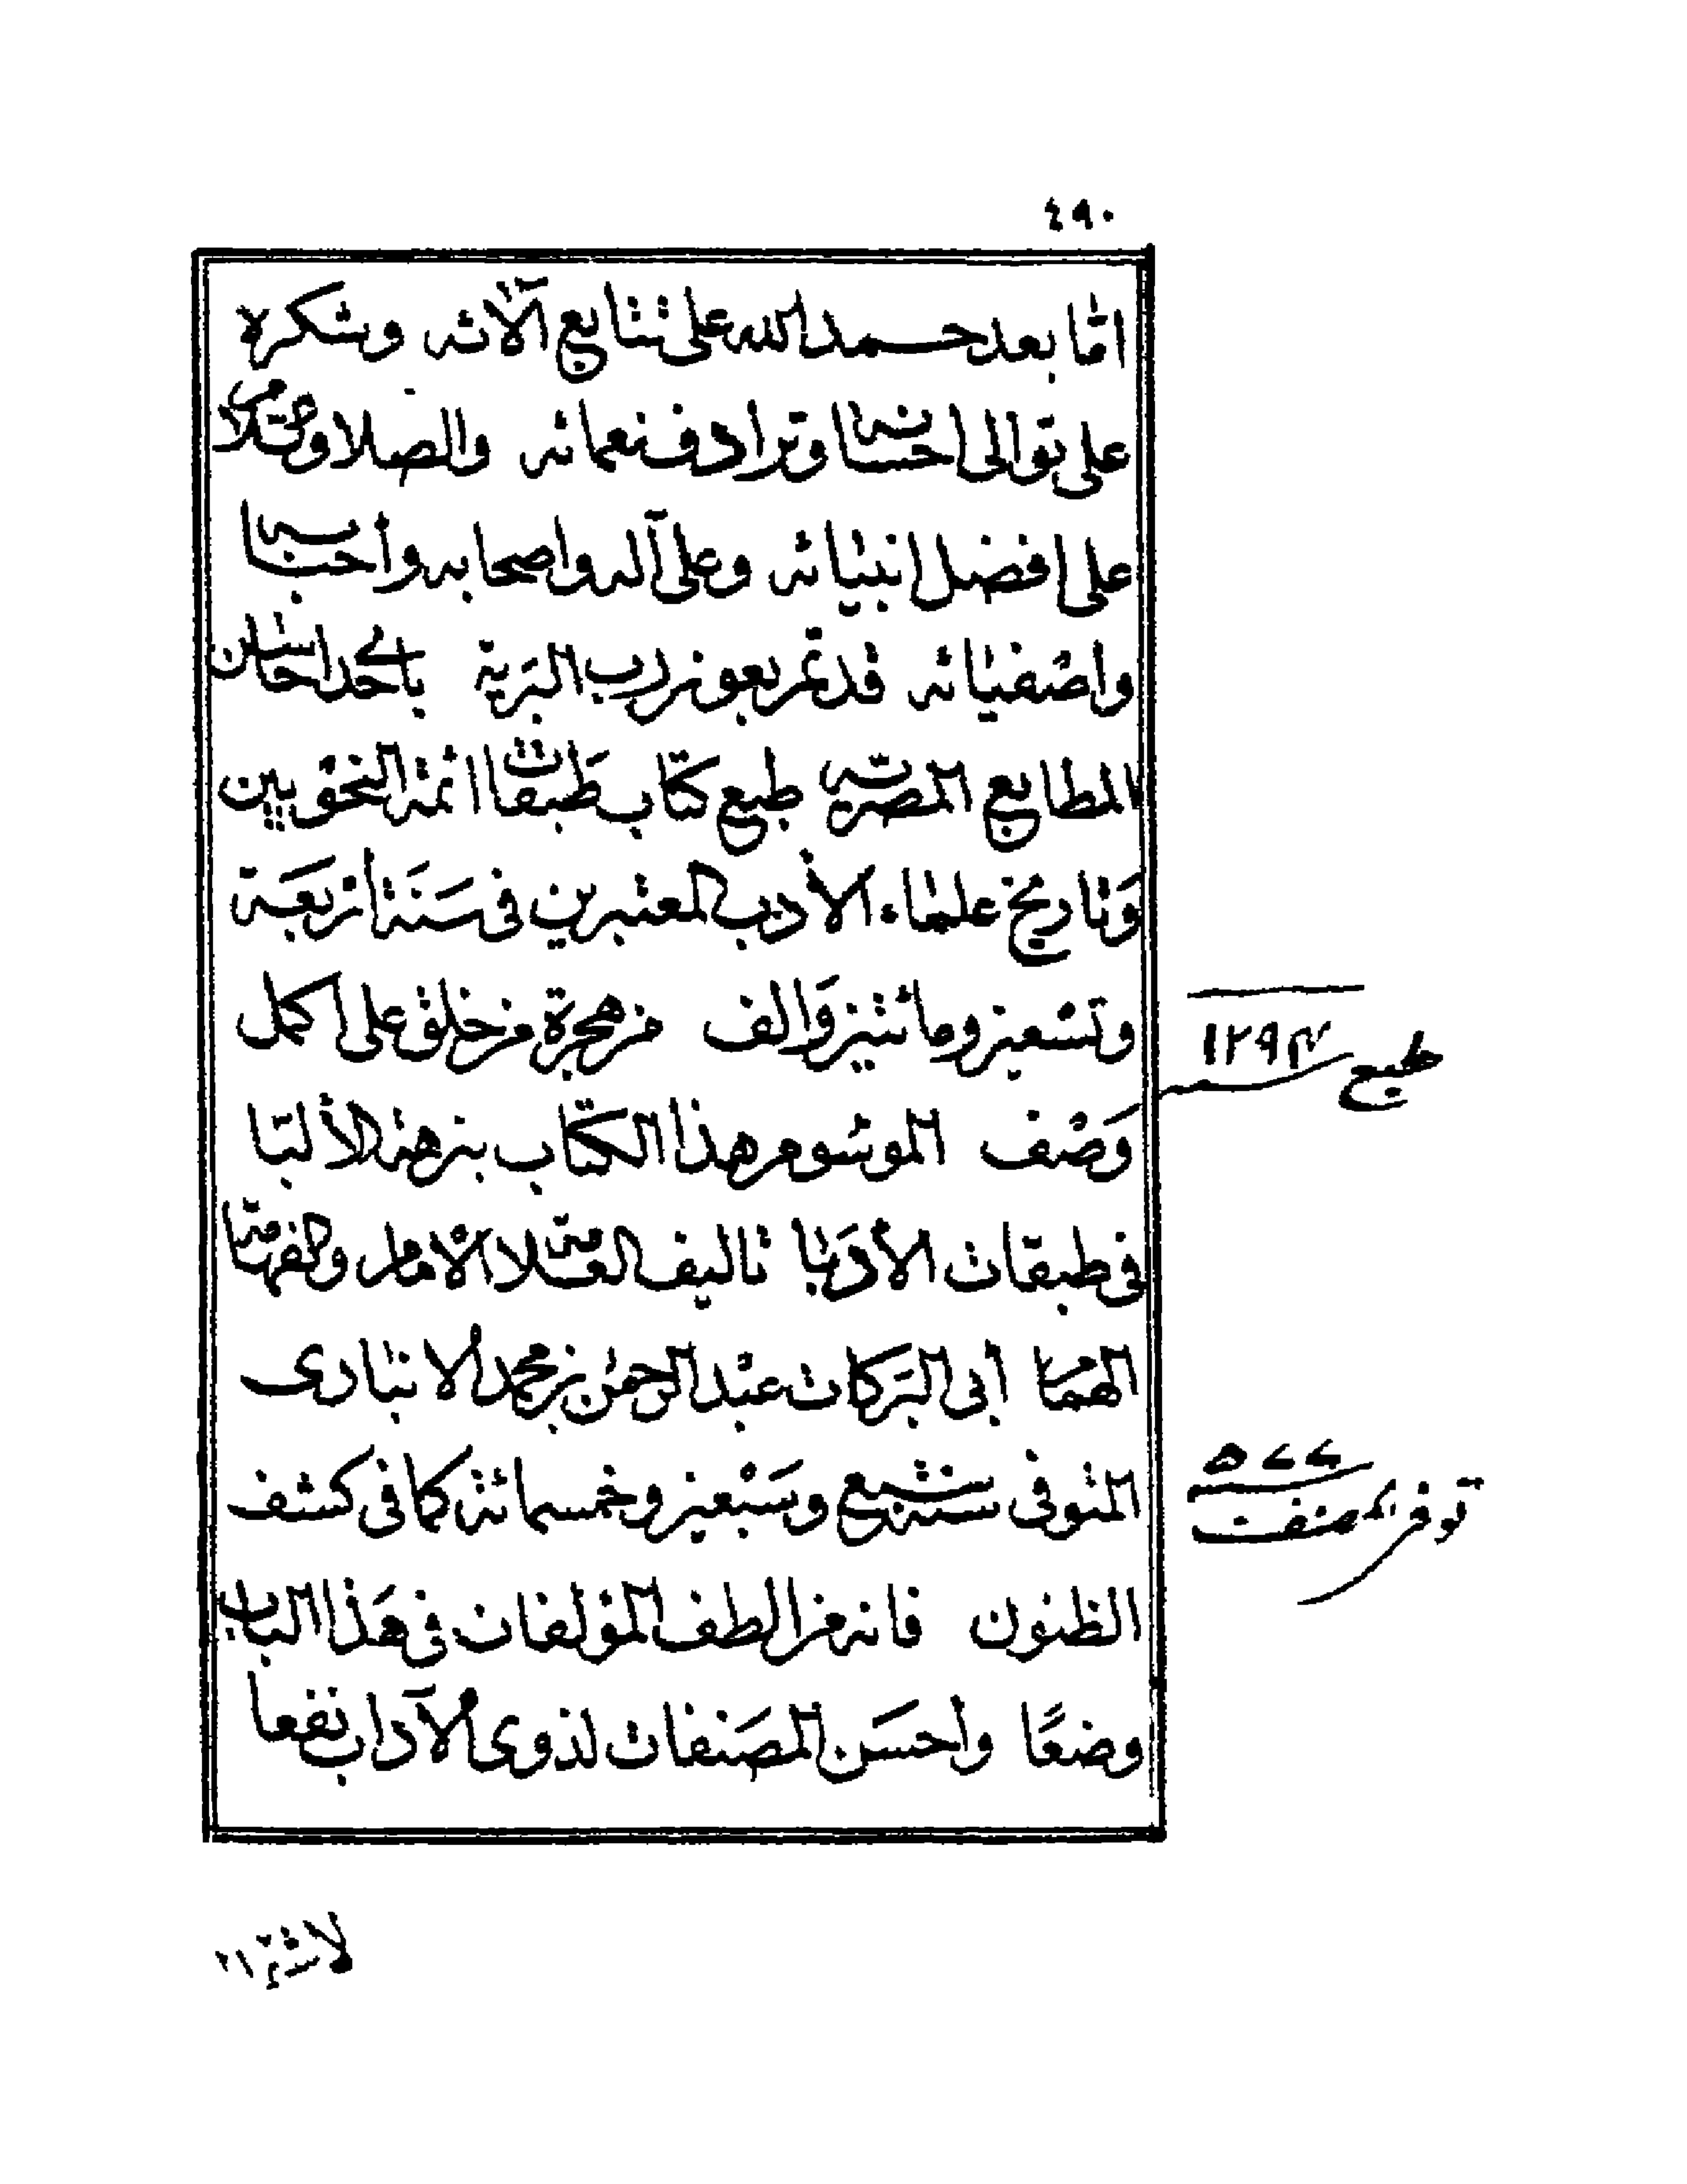 ٤٩٠
امّا بعد حمد الله على تتابع آلائه وشكره
على توالى احسانه وترادف نعمائه والصلاة والسلام
على افضل انبيائه وعلى آله واصحابه وأحبابه
واصفيائه قد تم بعون رب البرية باحد احاسن
المطابع المصرية طبع كتاب طَبقات ائمة النحويين
وَتاريخ علماء الأدب المعتبرين فى سَنَة أربعَة
وتسعين ومائتين وَالف من هجرة من خلق على اكمل
وَصْف الموسوم هذا الكتّاب بنزهة الألبّا
فى طبقات الأدَبا تاليف العلامة الامام والفهامة
الهمام أبى البَركات عبْد الرحمن بن محمد الانبارى
المتوفى سنة سبع وسَبْعين وخمسمائة كما فى كشف
الظنون فانه من الطف المؤلفات فى هَذا الباب
وضعًا وأحسَن المصَنفات لذوى الآداب نفعا
طبع ١٢٩٤
٥٧٧
توفى المصنف